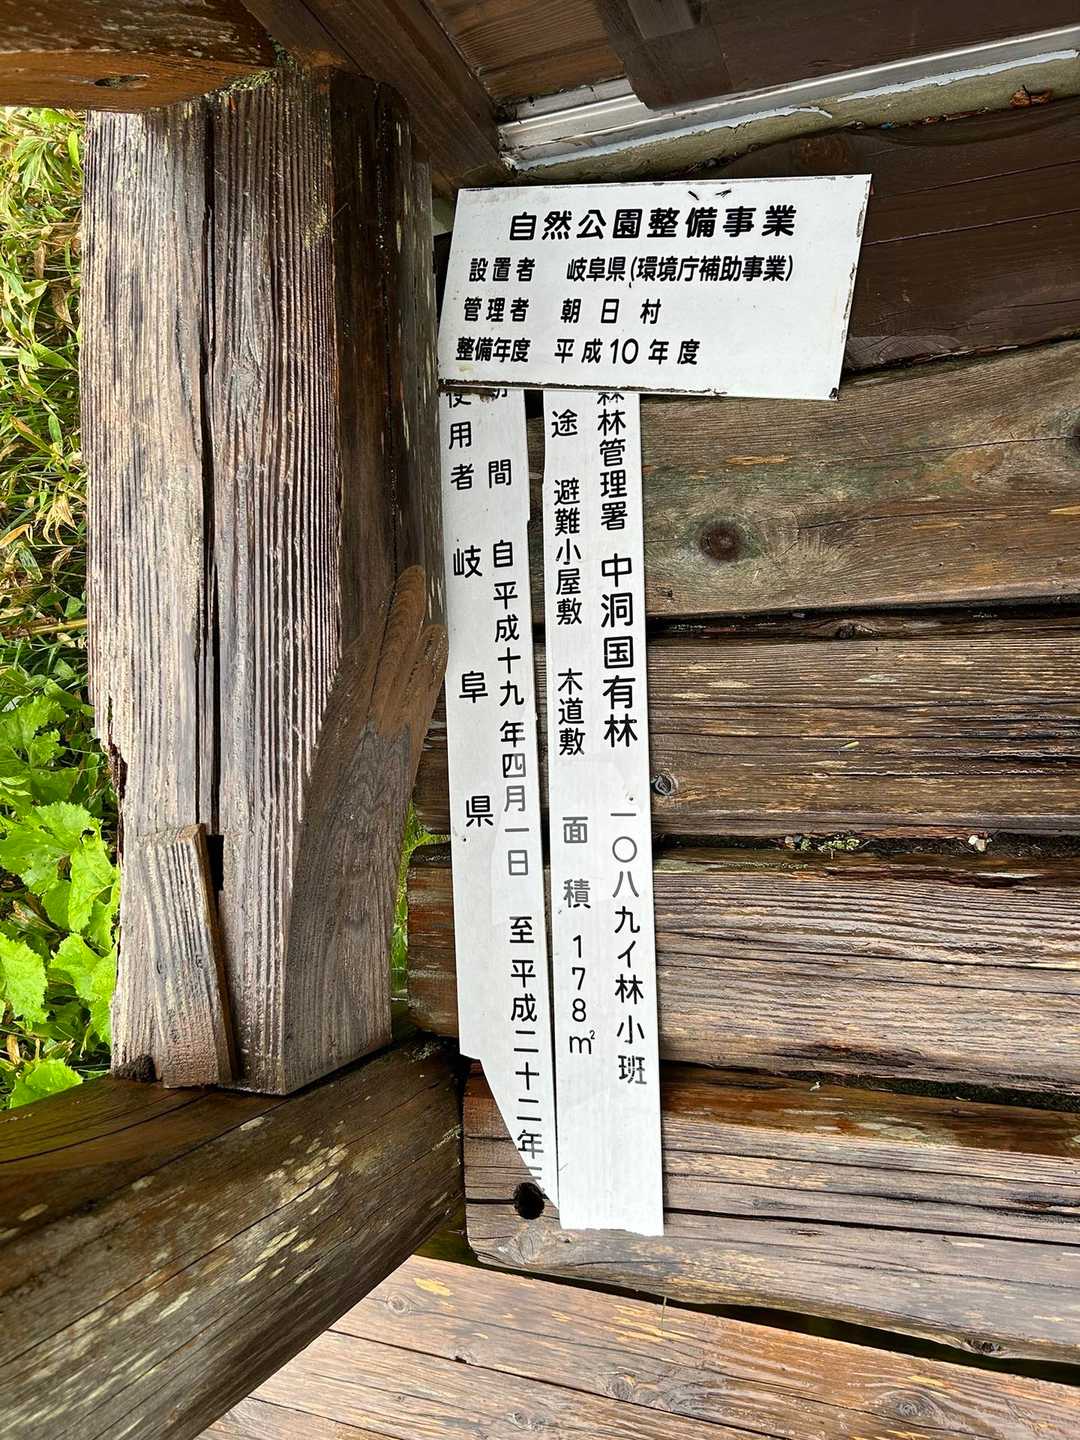 自然公園整備事業
設置者 岐阜県(環境庁補助事業)
管理者 朝日村
整備年度 平成10年度
森林管理署 中洞国有林 一〇八九イ林小班
途 避難小屋敷 木道敷 面積 178㎡
間 自平成十九年四月一日 至平成二十二年三
使用者 岐阜県